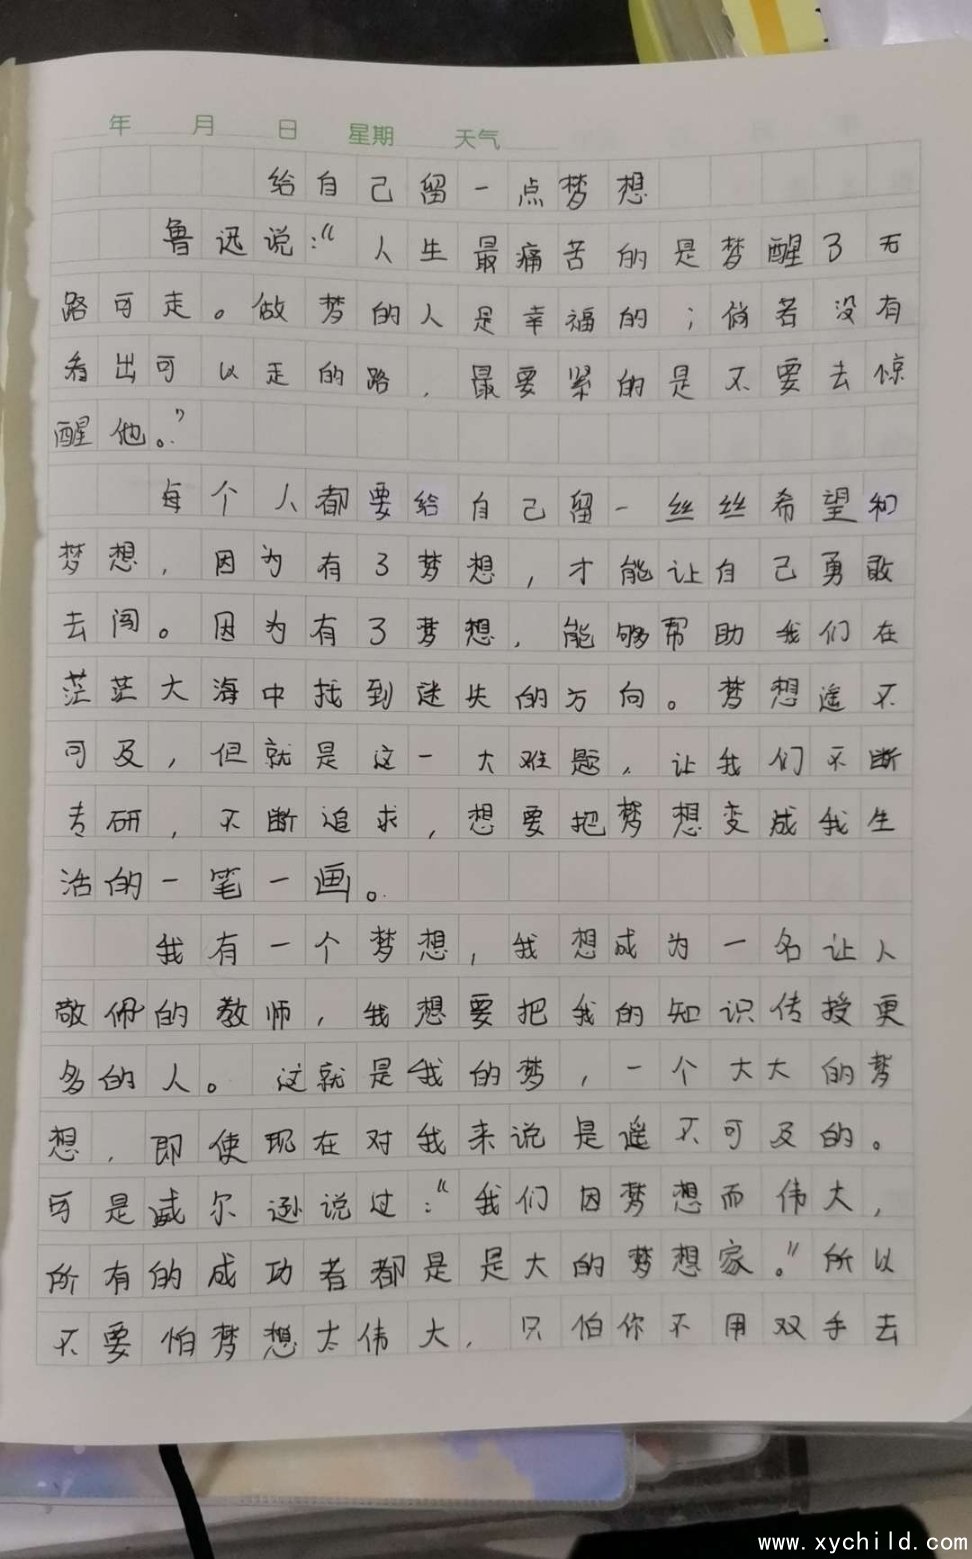 年 月 日 星期 天气
给自己留一点梦想
鲁迅说:“人生最痛苦的是梦醒了无
路可走。做梦的人是幸福的;倘若没有
看出可以走的路,最要紧的是不要去惊
醒他。”
每个人都要给自己留一丝丝希望和
梦想,因为有了梦想,才能让自己勇敢
去闯。因为有了梦想,能够帮助我们在
茫茫大海中找到迷失的方向。梦想遥不
可及,但就是这一大难题,让我们不断
专研,不断追求,想要把梦想变成我生
活的一笔一画。
我有一个梦想,我想成为一名让人
敬佩的教师,我想要把我的知识传授更
多的人。这就是我的梦,一个大大的梦
想,即使现在对我来说是遥不可及的。
可是威尔逊说过:“我们因梦想而伟大,
所有的成功者都是是大的梦想家。”所以
不要怕梦想太伟大,只怕你不用双手去
www.xychild.com